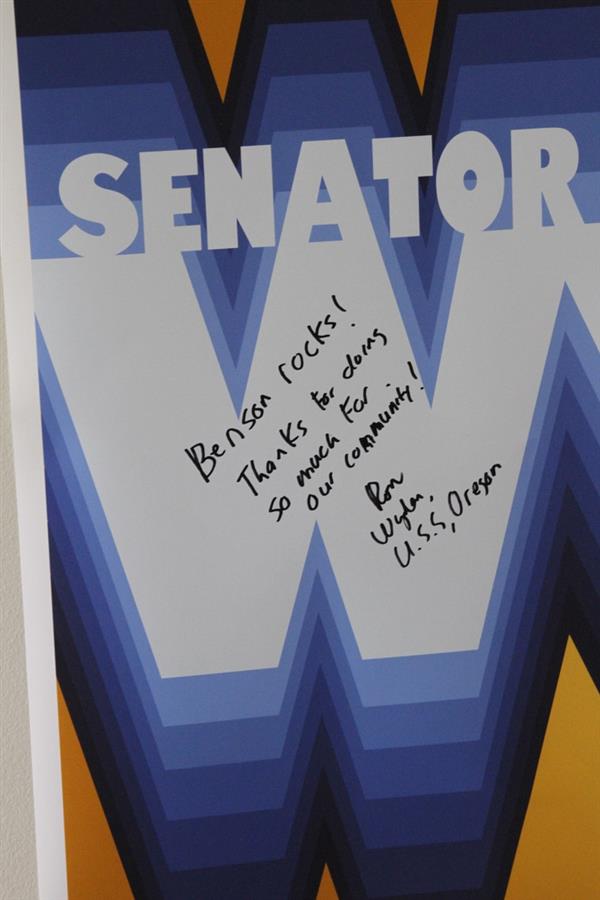 SENATOR
W
Benson rocks!
Thanks for doing
so much for
our community!
Ron
Wyden,
U.S.S, Oregon